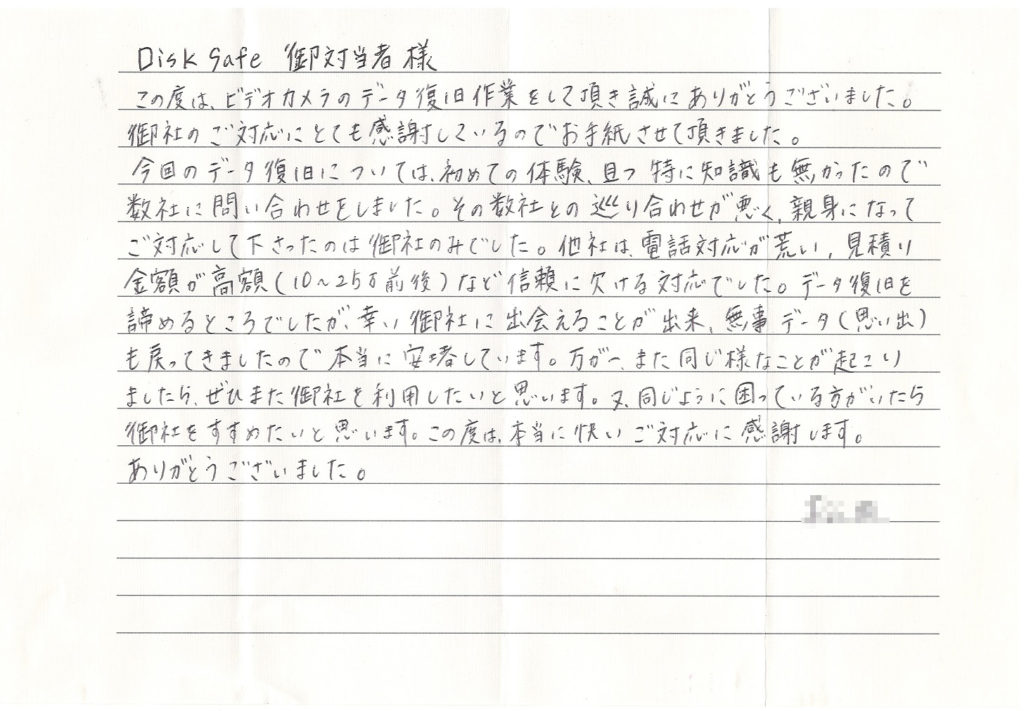 Disk Safe 御対当者様
この度は、ビデオカメラのデータ復旧作業をして頂き誠にありがとうございました。
御社のご対応にとても感謝しているのでお手紙させて頂きました。
今回のデータ復旧については、初めての体験、且つ特に知識も無かったので
数社に問い合わせをしました。その数社との巡り合わせが悪く、親身になって
ご対応して下さったのは御社のみでした。他社は、電話対応が荒い、見積り
金額が高額(10～25万前後)など信頼に欠ける対応でした。データ復旧を
諦めるところでしたが、幸い御社に出会えることが出来、無事データ(思い出)
も戻ってきましたので本当に安堵しています。万が一、また同じ様なことが起こり
ましたら、ぜひまた御社を利用したいと思います。又、同じように困っている方がいたら
御社をすすめたいと思います。この度は、本当に快いご対応に感謝します。
ありがとうございました。